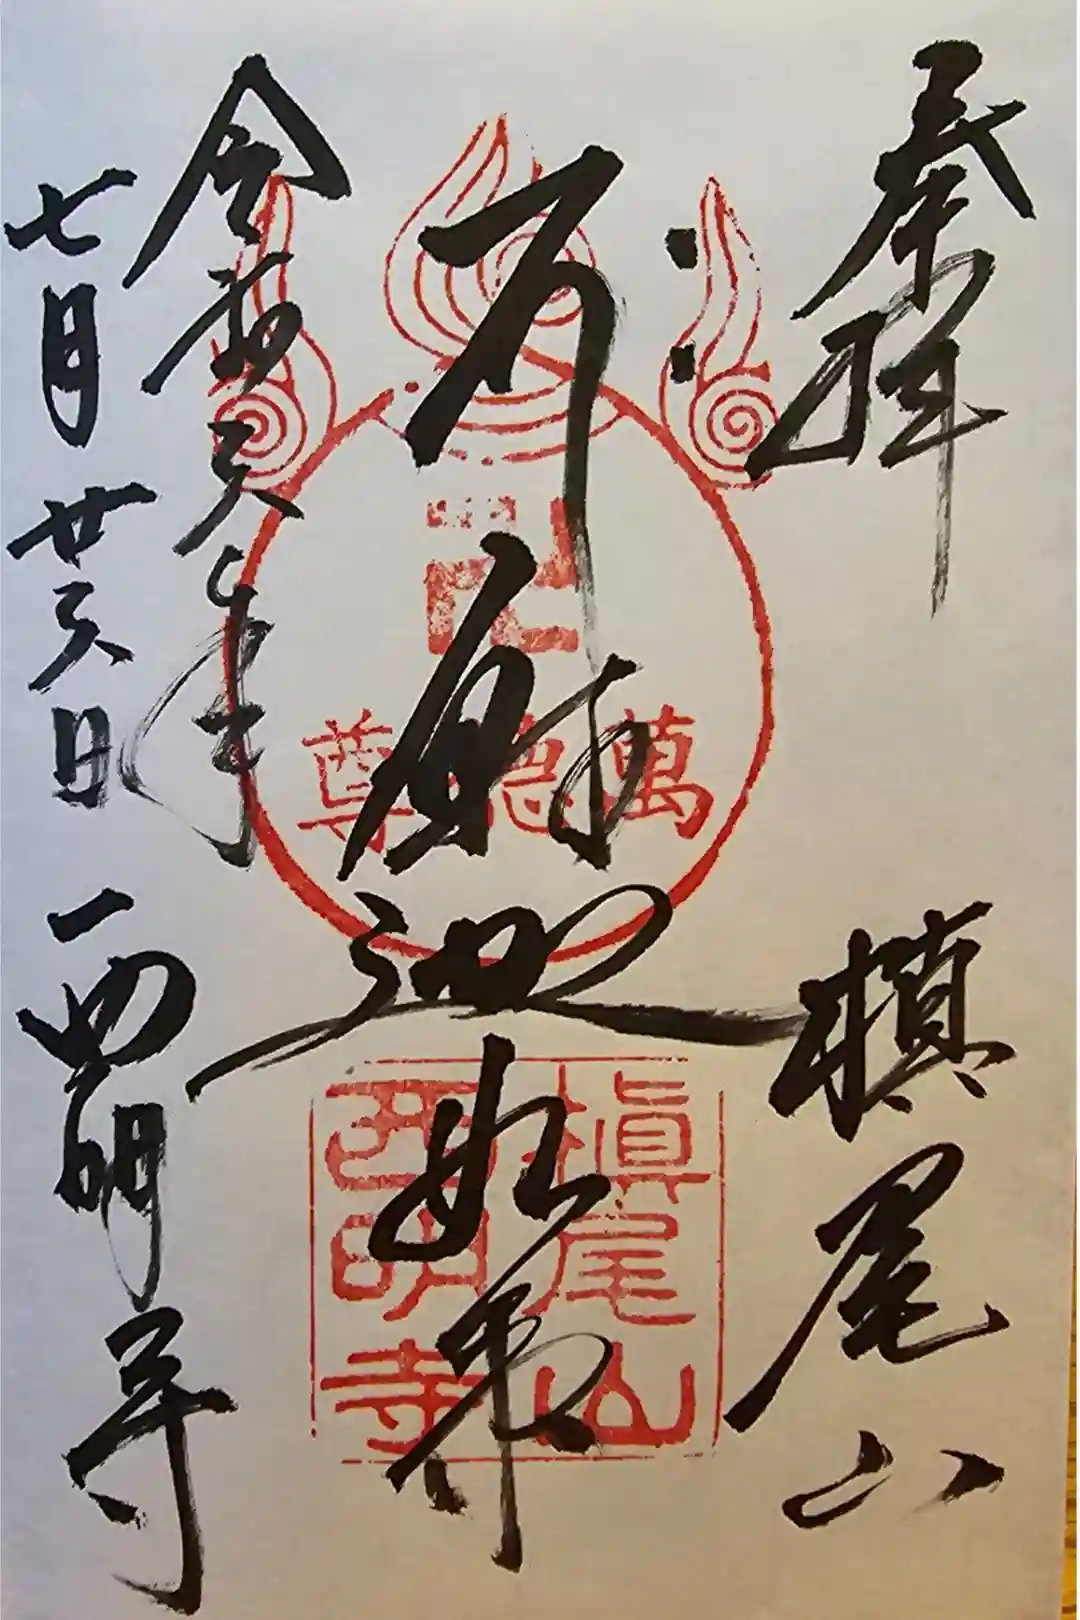 奉拝 槙尾山
迦如来
令和六年
七月廿六日 西明寺
卍
萬徳尊
槇尾山
西明寺